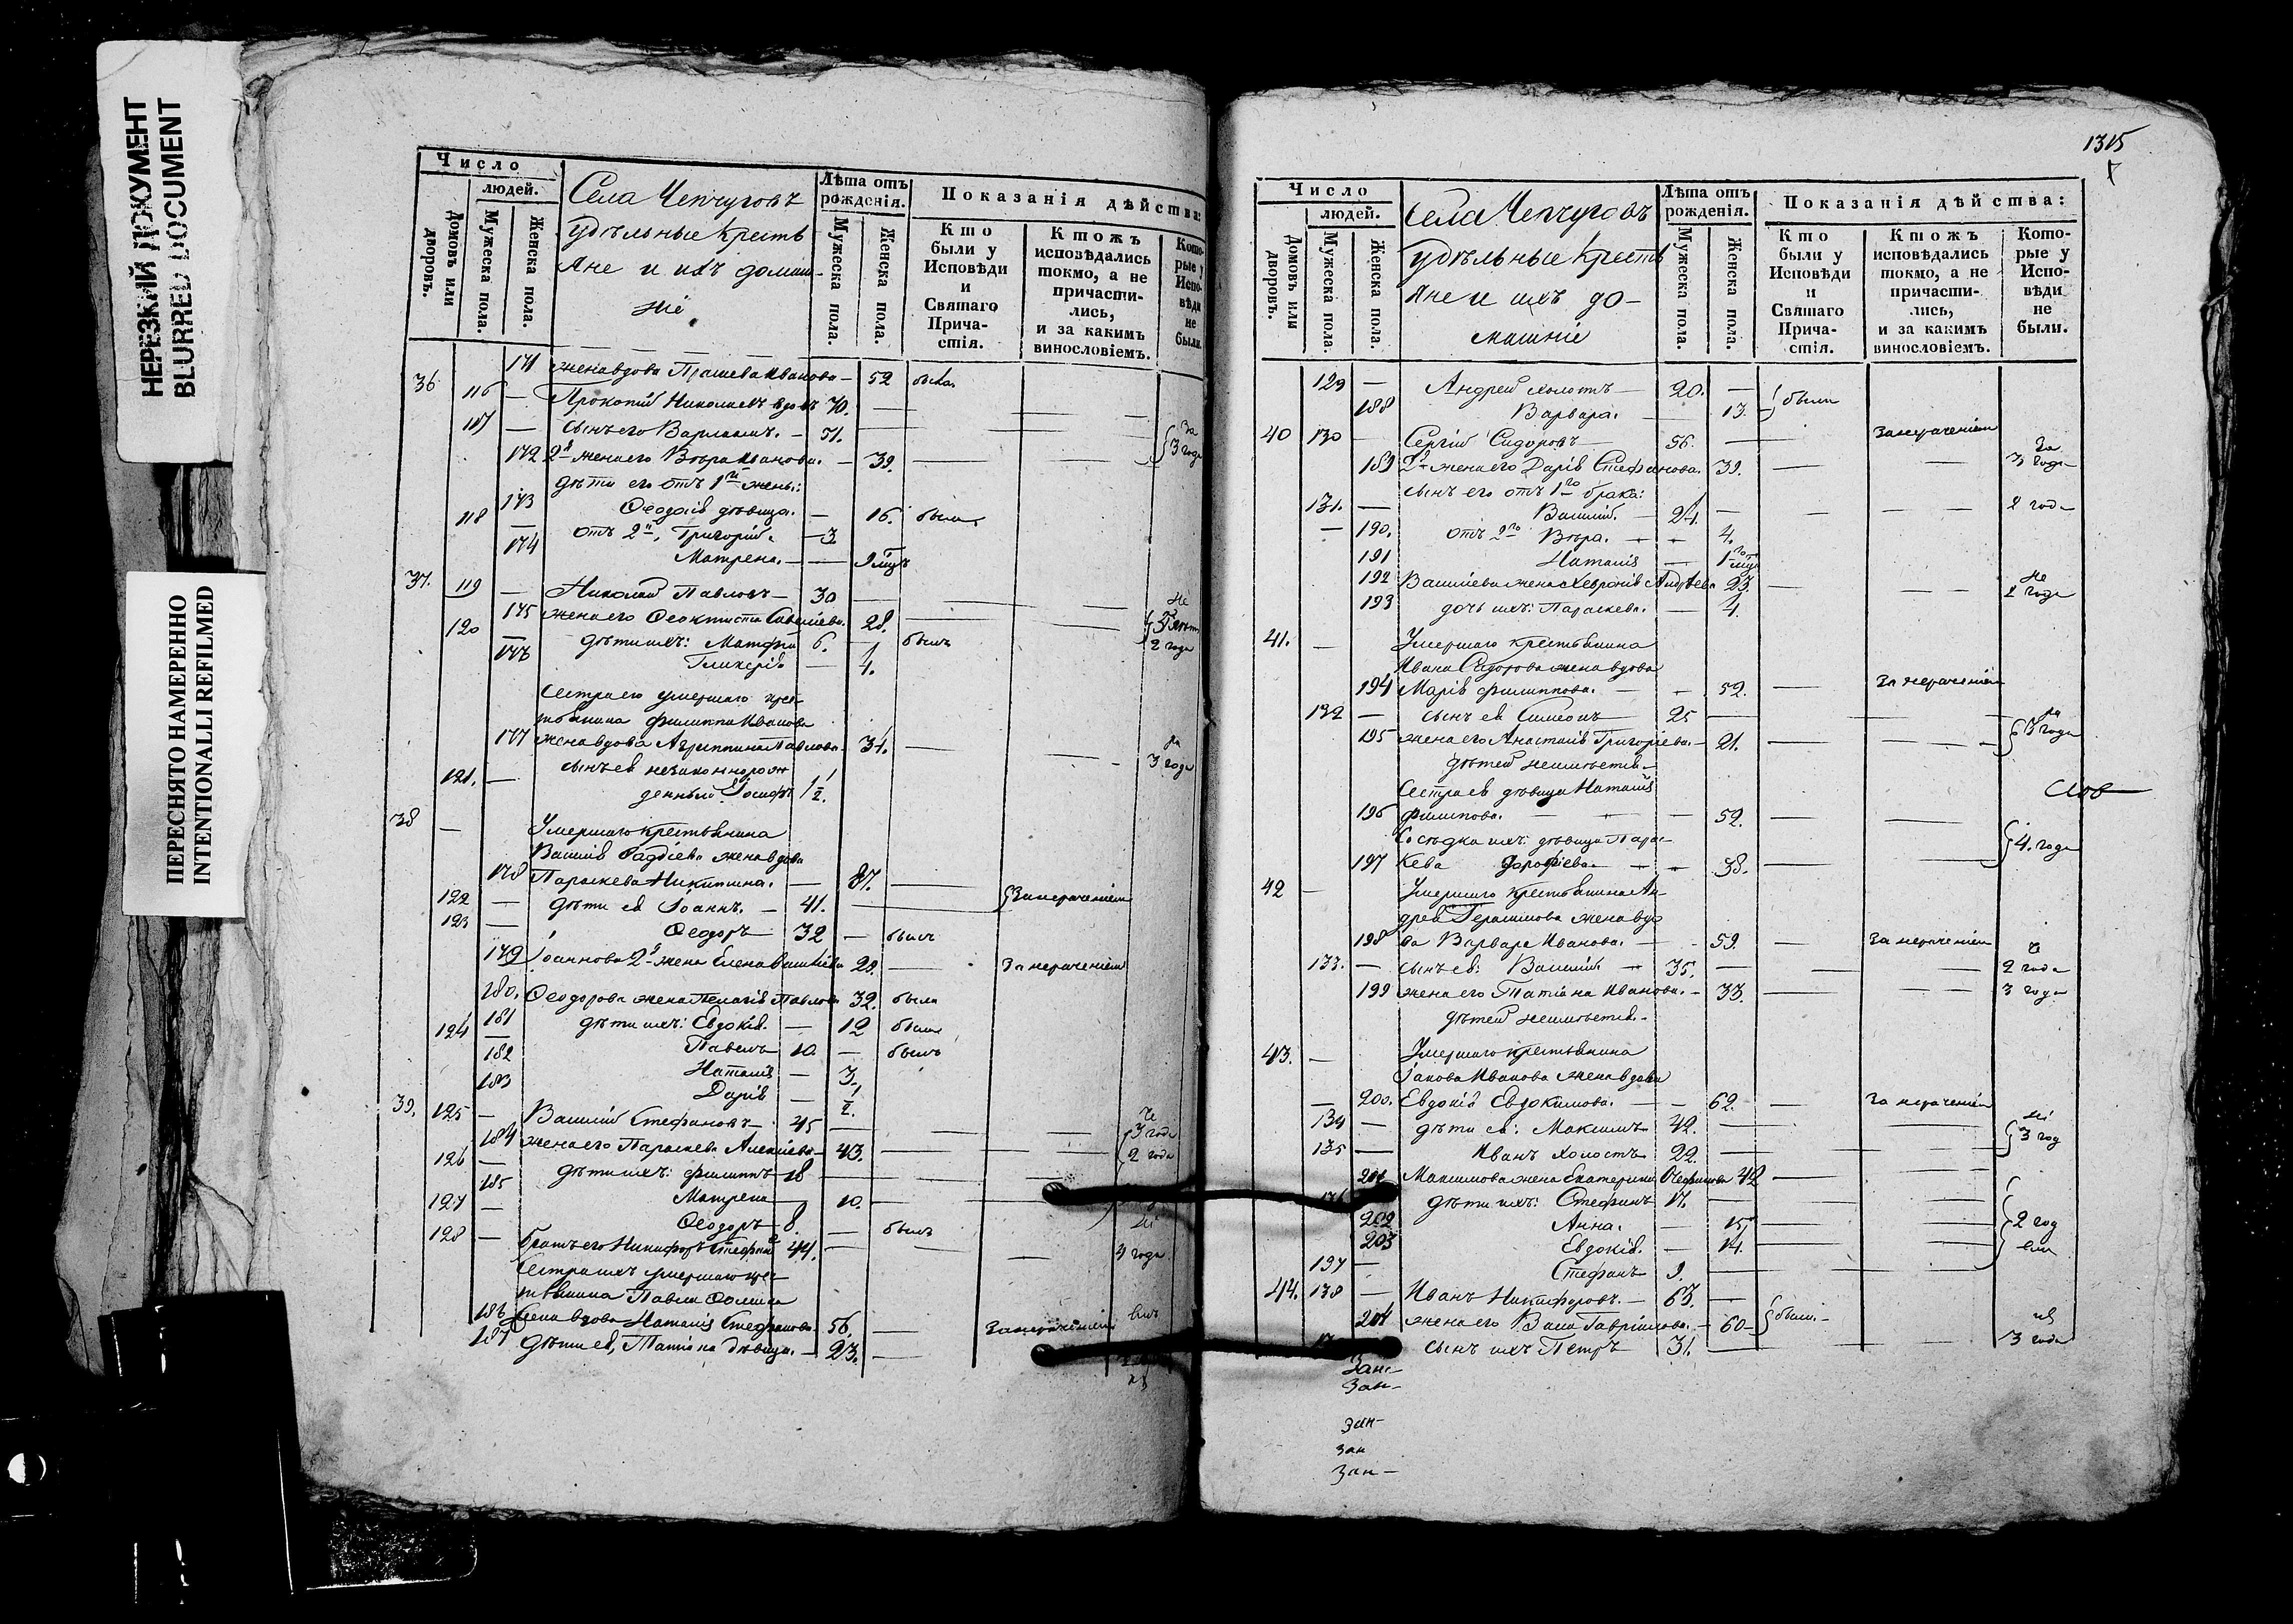 НЕРЕЗКИЙ ДОКУМЕНТ
BLURRED DOCUMENT
ПЕРЕСНЯТО НАМЕРЕННО
INTENTIONALLI REFILMED
Число
людей.
Домовъ или дворовъ.
Мужеска пола.
Женска пола.
Села Чепчуговъ
Удѣльные Кресть
яне и ихъ домаш-
ніе
Лѣта отъ рожденія.
Мужеска пола.
Женска пола.
Показанія дѣйства:
Кто были у Исповѣди и Святаго Прича-стія.
Ктожъ исповѣдались токмо, а не причасти-лись, и за какимъ винословіемъ.
Кото-рые у Испо-вѣди не были.
171 жена вдова Ивановa 52 была
36 116 — Прокопій Николаевъ вдовъ 70. —
117 — сынъ его Варлаамъ. — 51. За
172 2я жена его Вѣра Иванова. — 39. 3 года
дѣти его отъ 1й жены:
173 Ѳеодосія дѣвица. — 16. была
118 — отъ 2й, Григорій. — 3
174 Матрена. —
37. 119 — Николай Павловъ — 30 — Не
175 жена его Ѳеоктиста Савельева. 28.
120 — дѣти ихъ: Матфей 6. — былъ 2 года
176 Гликерія — 4.
Сестра его умершаго крес
тьянина Филиппа Иванова
177 жена вдова Агриппина Павлова. 34. — 3 года
121. — сынъ ея незаконнорож
денный Іосифъ 1/2.
38 — Умершаго крестьянина
Василія Фаддѣева жена вдова
178 Параскева Никитина. — 87. —
122 — дѣти ея Іоаннъ. — 41. — За нераченіемъ
123 — Ѳеодоръ 32 — былъ
179 Іоаннова 2я жена Елена Василіева 28. — За нераченіемъ
180. Ѳеодорова жена Пелагія Павлова 32. была
181 дѣти ихъ: Евдокія. — 12 была
124 — Павелъ 10. — былъ
182 Наталія — 3.
183 Дарія — 1/2.
39. 125 — Василій Стефановъ 45 — 3 года
184 жена его Параскева Алексѣева 43. — 2 года
126 — дѣти ихъ: Филиппъ 18 —
185 Матрена 10. —
127 — Ѳеодоръ 8. — былъ
128 — братъ его Никифоръ Стефан 44. — года
Сестра ихъ умершаго крес
тьянина Павла
186 жена вдова Наталія Стефанова 56. — За нераченіемъ
187 дѣти ея, Татіана дѣвица. — 23. —
1315
Число
людей.
Домовъ или дворовъ.
Мужеска пола.
Женска пола.
Села Чепчуговъ
Удѣльные Кресть
яне и ихъ до-
машніе
Лѣта отъ рожденія.
Мужеска пола.
Женска пола.
Показанія дѣйства:
Кто были у Исповѣди и Святаго Прича-стія.
Ктожъ исповѣдались токмо, а не причасти-лись, и за какимъ винословіемъ.
Кото-рые у Испо-вѣди не были.
129 — Андрей холостъ — 20. — были
188 Варвара. — 13.
40 130 — Сергій Сидоровъ — 56. — За нераченіем
189 2я жена его Дарія Стефанова. 39. — За 3 года
сынъ его отъ 1го брака:
131. — Василій. — 24. — 2 года
— 190. отъ 2го Вѣра. — 4.
191 Наталія —
192 Василіева жена Хевронія Андреева 23. — Не 2 года
193 дочь ихъ: Параскева. — 4.
41. — Умершаго крестьянина
Ивана Сидорова жена вдова
194 Марія Филиппова. — 59. — За нераченіем
132 — сынъ ея Симеонъ 25 —
195 жена его Анастасія Григоріева. — 21. — 3 года
дѣтей неимѣетъ —
Сестра ея дѣвица Наталія
196 Филипова. — 52. —
Сосѣдка ихъ: дѣвица Парас-
197 кева Дорофіева — 38. — 4. года
42 — Умершаго крестьянина Ан
дрея Герасимова жена вдо
198 ва Варвара Иванова. — 59. — За нераченіем
133. — сынъ ея: Василій — 35. — 2 года
199 жена его Татіана Иванова. — 33. — 3 года
дѣтей неимѣетъ. —
43. — Умершаго крестьянина
Іакова Иванова жена вдова
— 200. Евдокія Евдокимова. — 62. — За нераченіем
134 — дѣти ея: Максимъ 42. —
135 — Иванъ холостъ 22. — 3 год
201 Максимова жена Екатерина 42 —
136 дѣти ихъ: Стефанъ 17. —
202 Анна. — 15 — 2 год
203 Евдокія. — 14. —
137 — Стефанъ 9. —
44. 138 — Иванъ Никифоровъ. — 63. —
204 жена его Васса Гавріилова. — 60 — были. —
сынъ ихъ Петръ 31. — 3 года
Зан-
Зан-
Зан-
Зан
Зан-